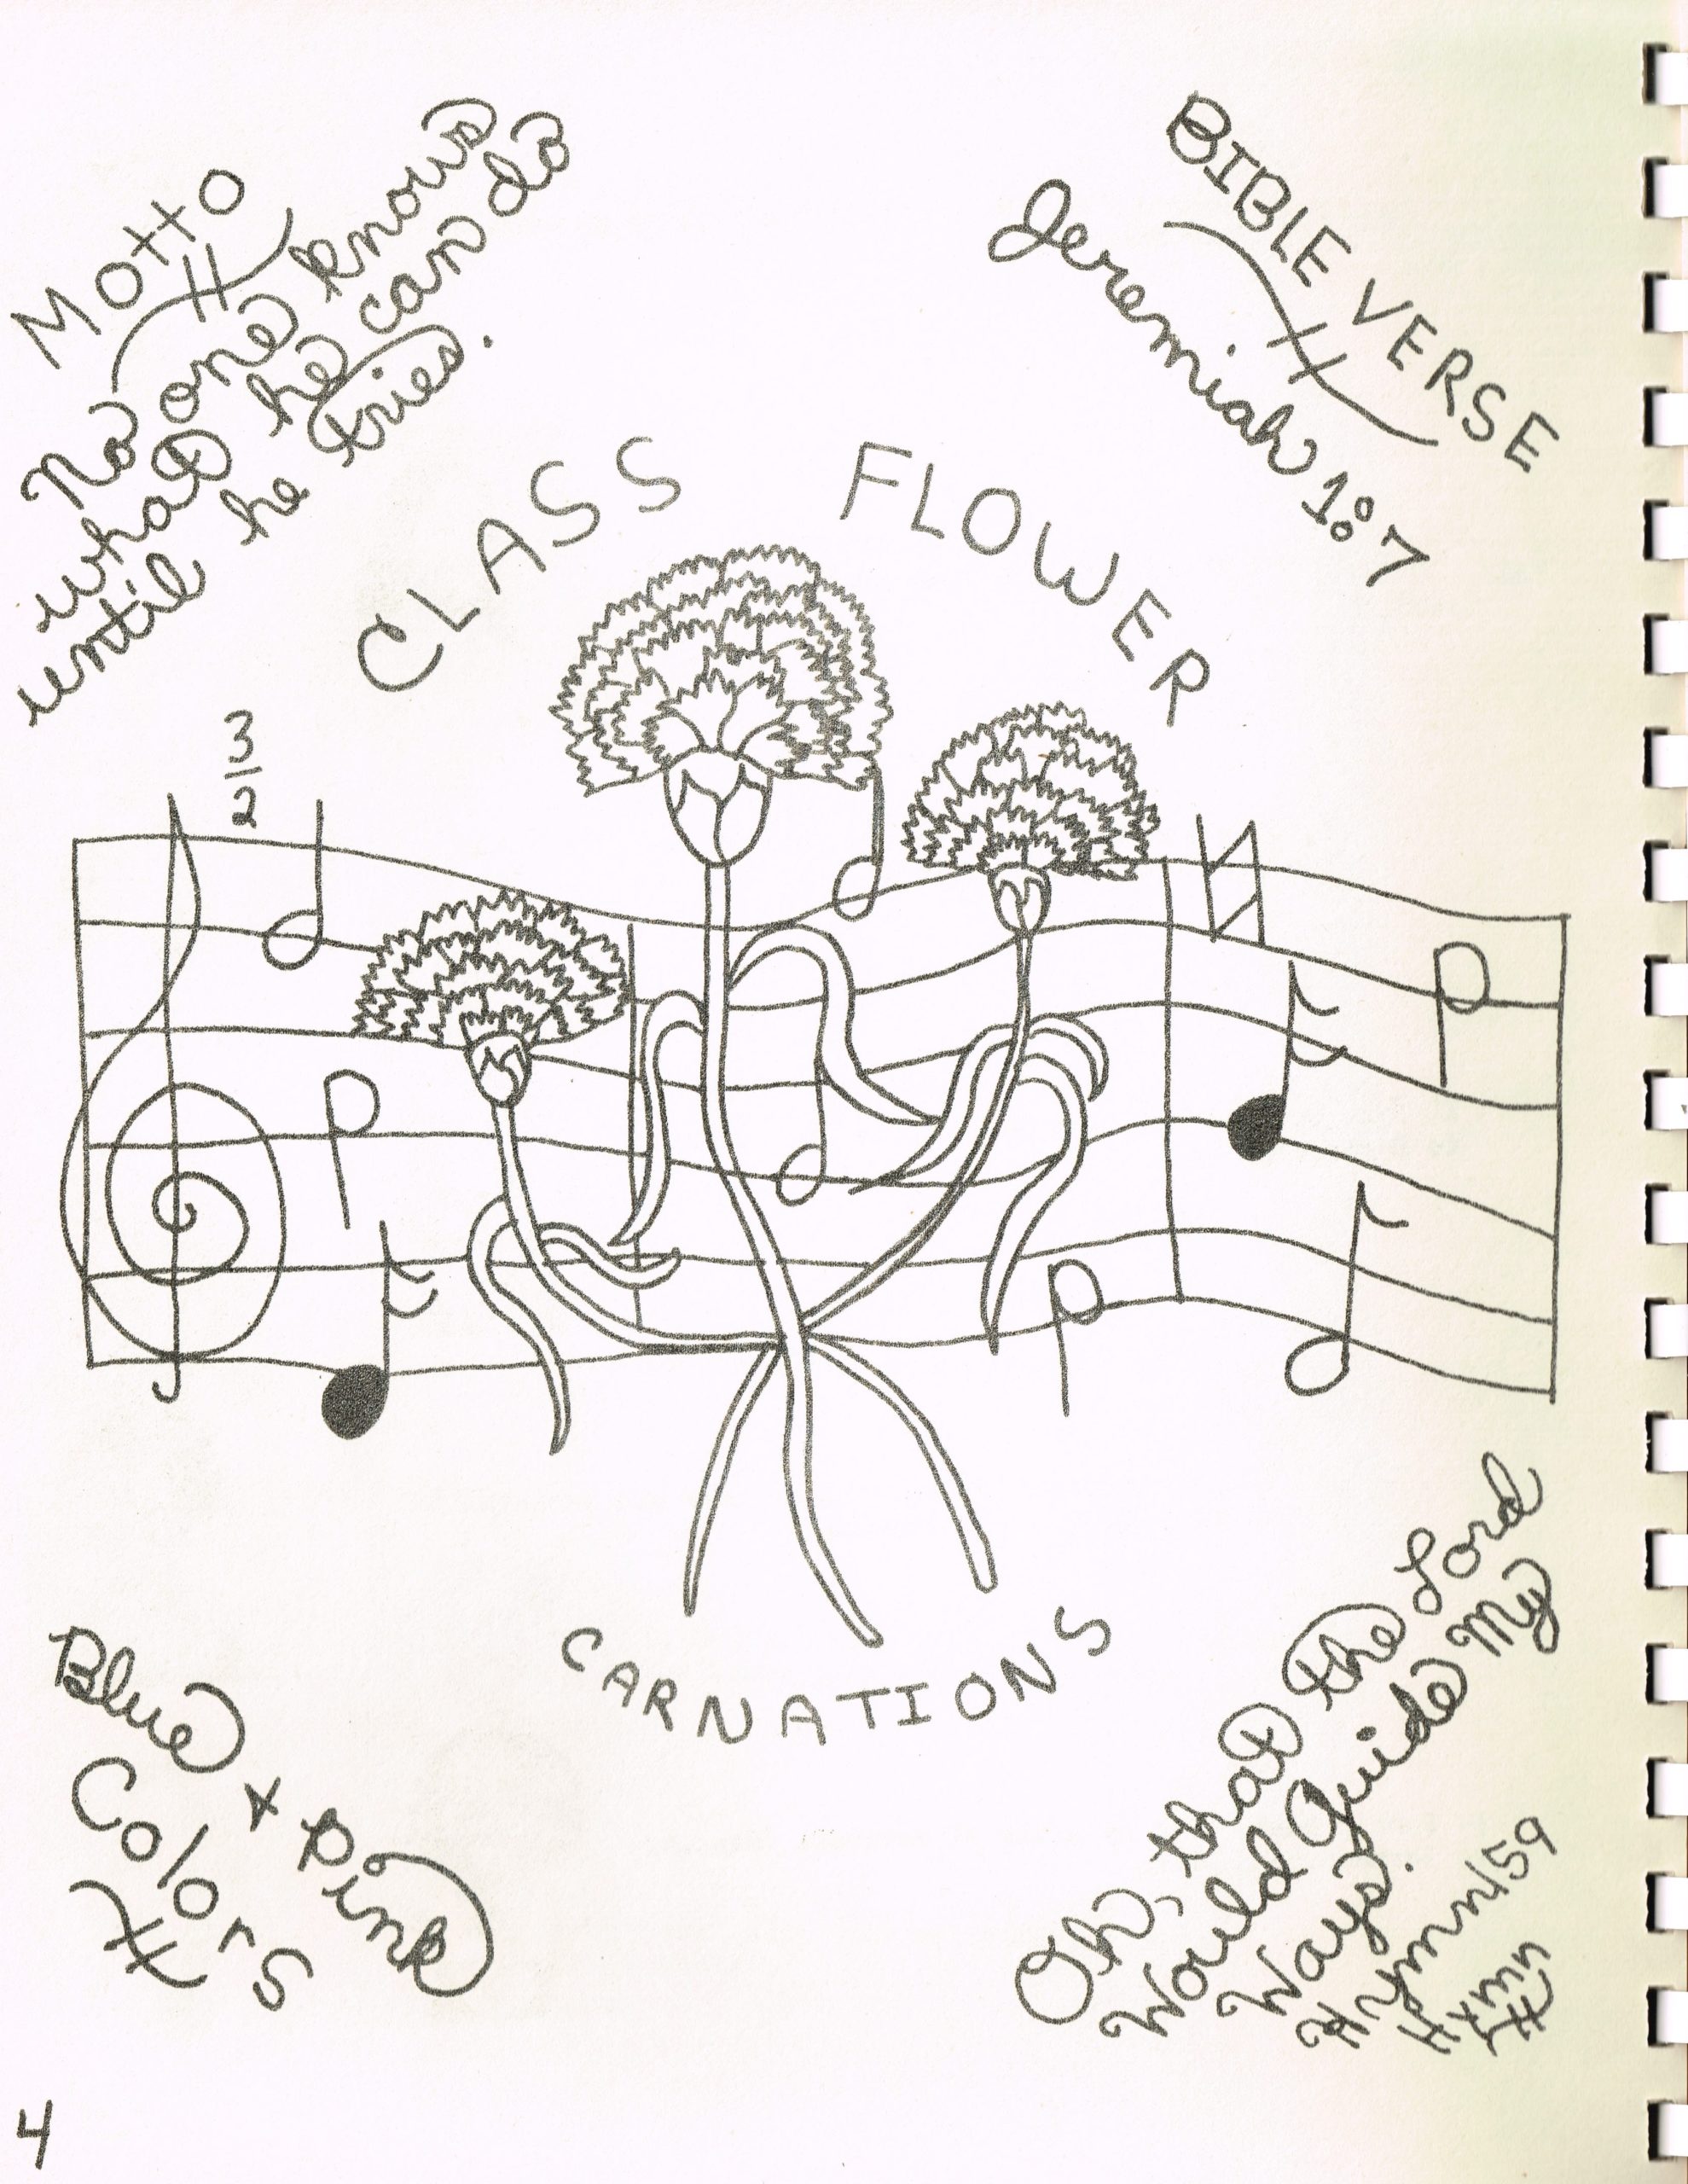 MOTTO
No one knows
what he can do
until he tries.
BIBLE VERSE
Jeremiah 1:7
CLASS FLOWER
3
2
CARNATIONS
Blue + Pink
Colors
Oh, that the Lord
Would Guide My
Ways.
Hymn 459
Hymn
4